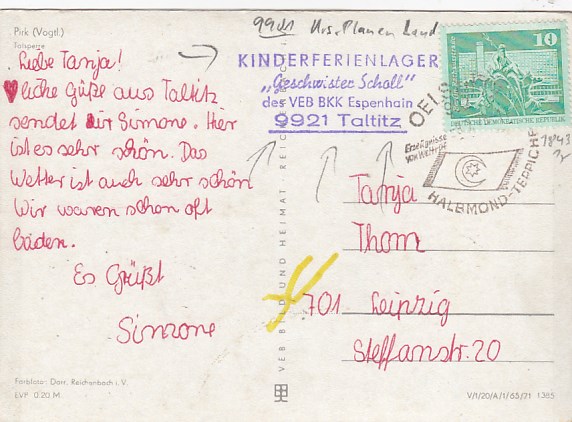 9901 Krs. Plauen Land
Pirk (Vogtl.)
Talsperre
Liebe Tanja!
liche Grüße aus Taltitz
sendet dir Simone. Hier
ist es sehr schön. Das
Wetter ist auch sehr schön
Wir waren schon oft
baden.
Es Grüßt
Simone
KINDERFERIENLAGER
„Geschwister Scholl"
des VEB BKK Espenhain
9921 Taltitz
10
DEUTSCHE DEMOKRATISCHE REPUBLIK
OELS
Erzeugnisse
von Weltruf
HALBMOND-TEPPICHE
Tanja
Thom
701 Leipzig
Steffanstr. 20
VEB BILD UND HEIMAT REICH
Farbfoto: Darr, Reichenbach i. V.
EVP 0.20 M.
V/1/20/A/1/65/71 1385